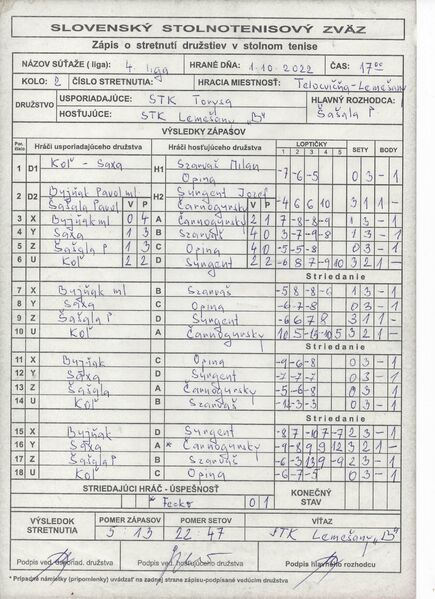 SLOVENSKÝ STOLNOTENISOVÝ ZVÄZ
Zápis o stretnutí družstiev v stolnom tenise
NÁZOV SÚŤAŽE ( liga): 4 liga HRANÉ DŇA: 1.10.2022 ČAS: 17 00
KOLO: 2 ČÍSLO STRETNUTIA: HRACIA MIESTNOSŤ: Telocvičňa-Lemešany
DRUŽSTVO USPORIADAJÚCE: STK Torysa HLAVNÝ ROZHODCA:
HOSŤUJÚCE: STK Lemešany "B" Šašala P
VÝSLEDKY ZÁPASOV
Por. číslo Hráči usporiadajúceho družstva Hráči hosťujúceho družstva LOPTIČKY 1 2 3 4 5 SETY BODY
1 D1 Koľ - Saxa H1 Szarvaš Milan Opina -7 -6 -5 0 3 - 1
2 D2 Byjňak Pavol ml Šašala Pavol V P H2 Surgent Jozef Čarnogursky V P -4 6 6 10 3 1 1 -
3 X Byjňak ml 0 4 A Čarnogursky 2 1 7 -8 -8 -9 1 3 - 1
4 Y Saxa 1 3 B Szarvaš 4 0 3 -7 -9 -8 1 3 - 1
5 Z Šašala P 1 3 C Opina 4 0 -5 -5 -8 0 3 - 1
6 U Koľ 2 2 D Surgent 2 2 -6 8 7 -9 10 3 2 1 -
Striedanie
7 X Byjňak ml B Szarvaš -5 8 -8 -6 1 3 - 1
8 Y Saxa C Opina -6 -7 -8 0 3 - 1
9 Z Šašala P D Surgent -6 6 7 8 3 1 1 -
10 U Koľ A Čarnogursky 10 5 -13 -10 5 3 2 1 -
Striedanie
11 X Byjňak C Opina -9 -6 -8 0 3 - 1
12 Y Saxa D Surgent -7 -7 -7 0 3 - 1
13 Z Šašala A Čarnogursky -5 -6 -8 0 3 - 1
14 U Koľ B Szarvaš -12 -3 -3 0 3 - 1
Striedanie
15 X Byjňak D Surgent -8 7 -10 7 -7 2 3 - 1
16 Y Saxa A * Čarnogursky -9 8 9 9 12 3 2 1 -
17 Z Šašala P B Szarvaš -6 -3 13 9 -9 2 3 - 1
18 U Koľ C Opina -6 -7 -5 0 3 - 1
STRIEDAJÚCI HRÁČ - ÚSPEŠNOSŤ KONEČNÝ STAV
* Fecko 0 1
VÝSLEDOK STRETNUTIA POMER ZÁPASOV POMER SETOV VÍŤAZ
5 : 13 22 : 47 STK Lemešany "B"
Podpis ved. domáceho družstva Podpis ved. hosťujúceho družstva Podpis hlavného rozhodcu
* Prípadné námietky (pripomienky) uvádzať na zadnej strane zápisu-podpísané vedúcim družstva